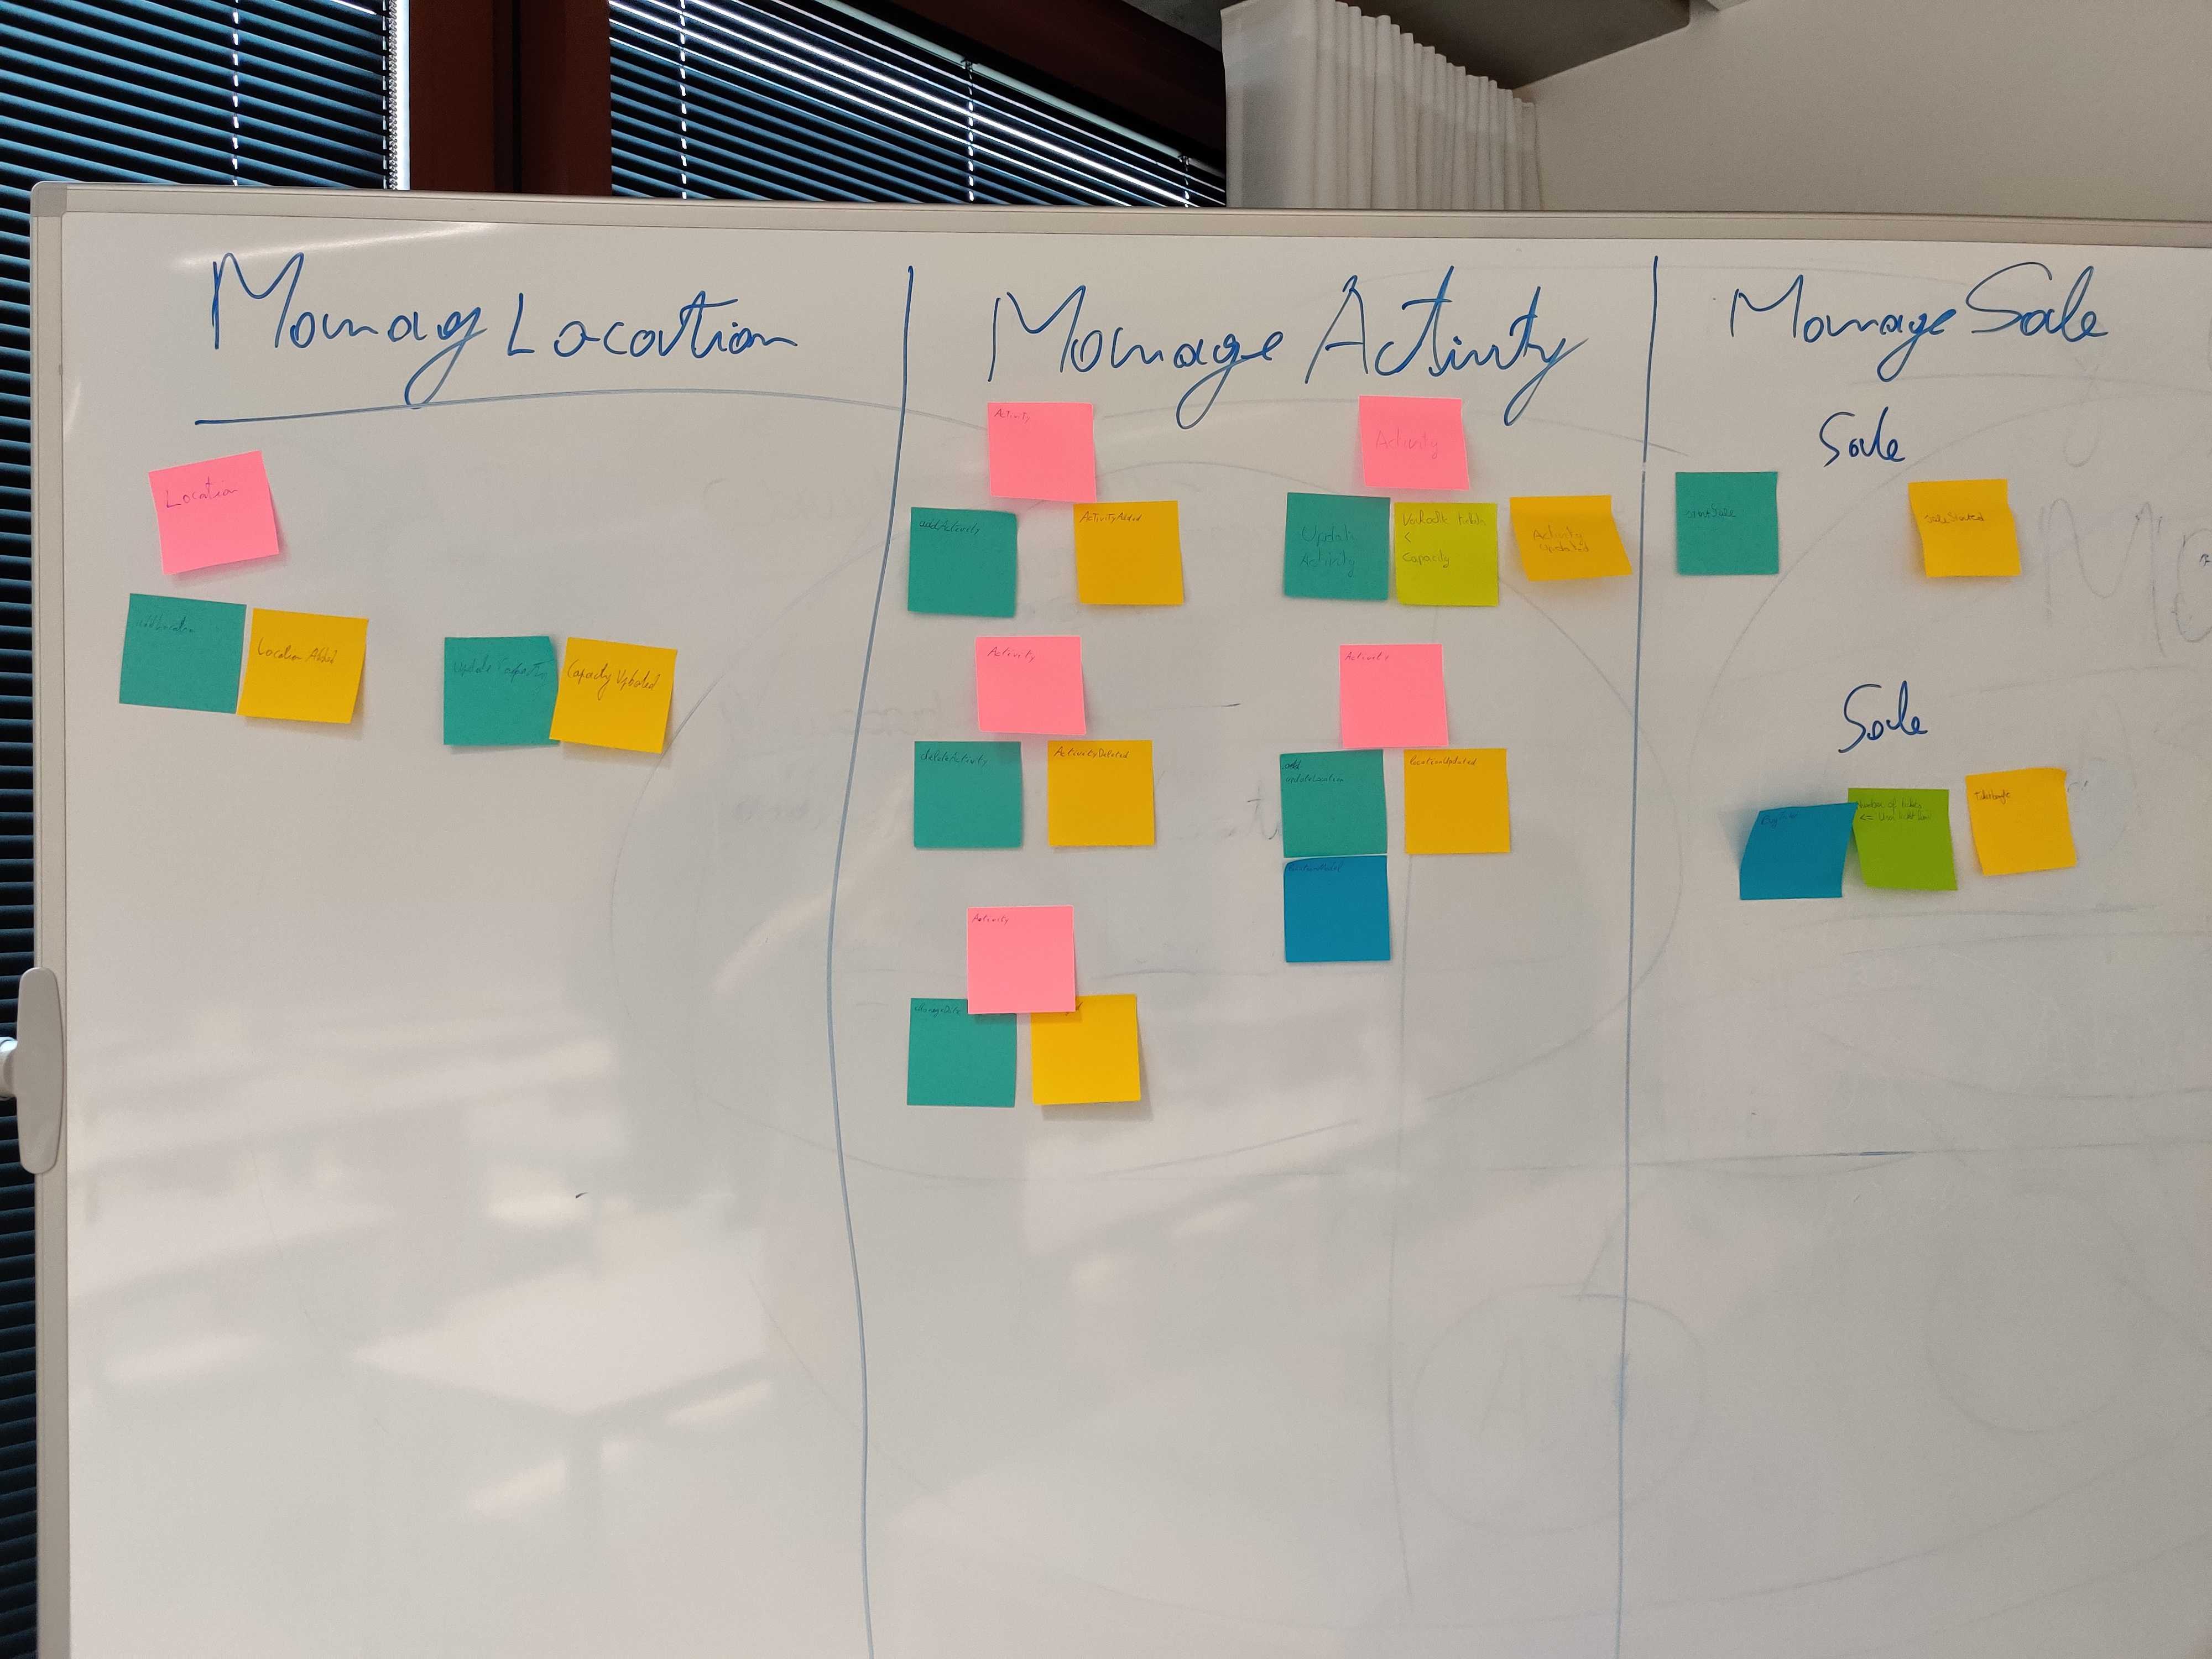 Manag Location
Location
Location Added
Update Capacity
Capacity Updated
Manage Activity
Activity
addActivity
ActivityAdded
Activity
Update
Activity
<
Capacity
Activity
Updated
Activity
deleteActivity
ActivityDeleted
Activity
add
updateLocation
locationUpdated
Activity
changeDate
Manage Sale
Sale
startSale
SaleStarted
Sale
Number of
<= User